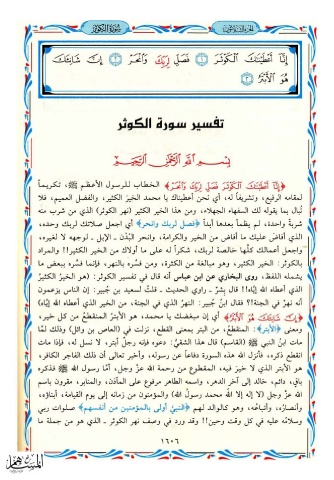 سُورَةُ الكَوْثَرِ
إِنَّا أَعْطَيْنَاكَ الْكَوْثَرَ ١ فَصَلِّ لِرَبِّكَ وَانْحَرْ ٢ إِنَّ شَانِئَكَ
هُوَ الْأَبْتَرُ ٣
تفسير سورة الكوثر
بِسْمِ اللَّهِ الرَّحْمَٰنِ الرَّحِيمِ
﴿إِنَّا أَعْطَيْنَاكَ الْكَوْثَرَ فَصَلِّ لِرَبِّكَ وَانْحَرْ﴾ الخطاب للرسول الأعظم ﷺ، تكريماً
لمقامه الرفيع، وتشريفاً له، أي نحن أعطيناك يا محمد الخير الكثير، والفضل العميم، فلا
تُبال بما يقوله لك السفهاء الجهلاء، ومن هذا الخير الكثير (نهر الكوثر) الذي من شرب منه
شربةً واحدة، لم يظمأ بعدها أبداً ﴿فصل لربك وانحر﴾ أي اجعل صلاتك لربك وحده،
الذي أفاض عليك ما أفاض من الخير والكرامة، وانحر البُدْن ـ الإبل ـ لوجهه لا لغيره،
واجعل أعمالك كلَّها خالصة لربك، شكراً له على ما أولاك من الخير الكثير!! والمراد
بالكوثر: الخير الكثير، وهو مبالغة من الكثرة، ومن فسَّره بالنهر، فإنما فسَّره ببعض ما
يشمله اللفظ، روى البخاري عن ابن عباس أنه قال في تفسير الكوثر: (هو الخيرُ الكثيرُ
الذي أعطاه الله إيَّاه)! قال بِشرٌ ـ راوي الحديث ـ قلت لسعيد بن جُبير: إن الناس يزعمون
أنه نهرٌ في الجنة!؟ فقال ابنُ جُبير: النهرُ الذي في الجنة، من الخير الذي أعطاه الله إيَّاه)
﴿إِنَّ شَانِئَكَ هُوَ الْأَبْتَرُ﴾ أي إن مبغضك يا محمد، هو الأبترُ المنقطعُ من كل خير،
ومعنى ﴿الأبتر﴾: المنقطعُ، من البتر بمعنى القطع، نزلت في (العاص بن وائل) وذلك لمَّا
مات ابنُ النبي ﷺ (القاسم) قال هذا الشقيُّ: دعوه فإنه رجل أبتر، لا نسل له، فإذا مات
انقطع ذكره، فأنزل الله هذه السورة دفاعاً عن رسوله، وأخبر تعالى أن ذلك الفاجر الكافر،
هو الأبتر الذي لا خيرَ فيه، المقطوع من رحمة الله عزَّ وجل، أمَّا رسول الله ﷺ فذكره
باقٍ، دائم، خالد إلى آخر الدهر، واسمه الطاهر مرفوع على المآذن، والمنابر، مقرون باسم
الله عزَّ وجل (لا إله إلا الله محمدٌ رسول الله) والمؤمنون من زمانه إلى يوم القيامة، أبناؤه،
وأنصاره، وأتباعُه، وهو كالوالد لهم ﴿النبيُّ أولى بالمؤمنين من أنفسهم﴾ صلوات ربي
وسلامُه عليه في كل وقت وحين!! وقد ورد في وصف نهر الكوثر ـ الذي هو من جملة ما
١٤٠٦